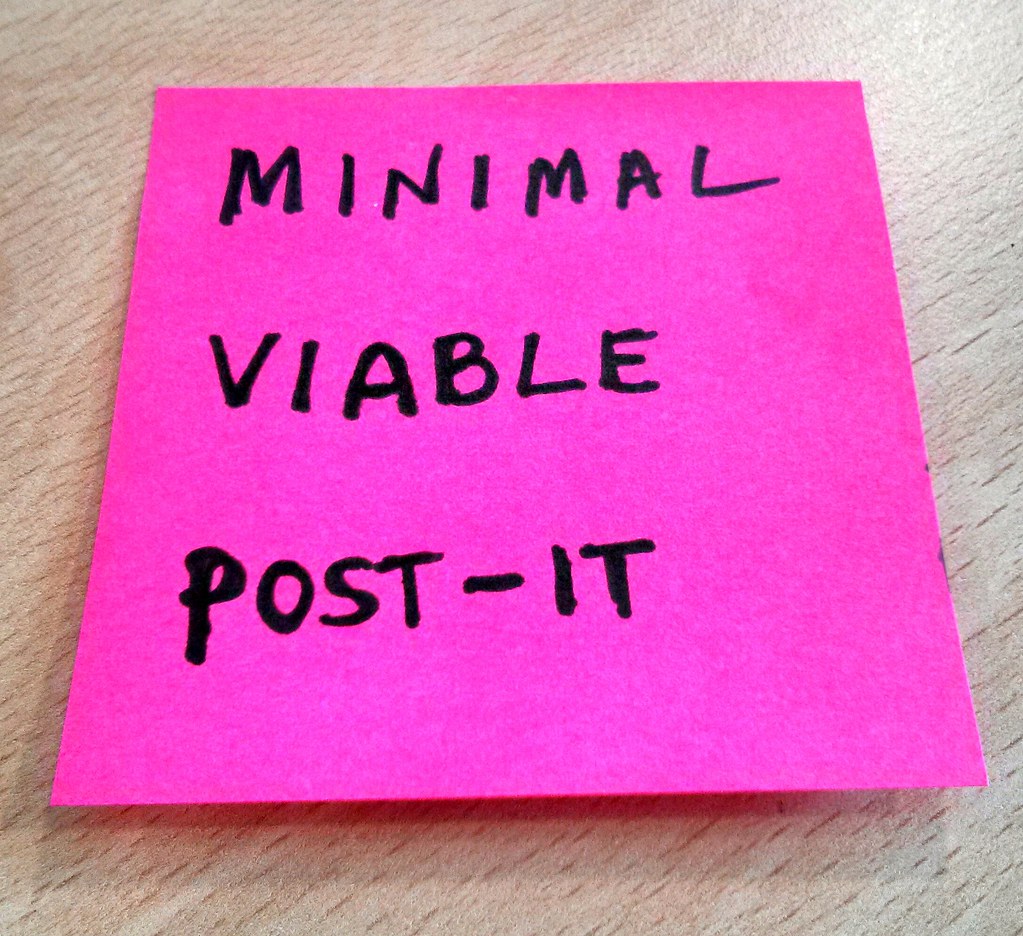 MINIMAL
VIABLE
POST-IT